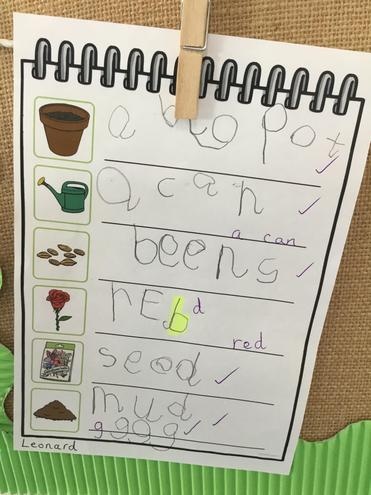 a big pot
a can
a can
beens
rEb d
red
seed
mud
g g g g g
Leonard